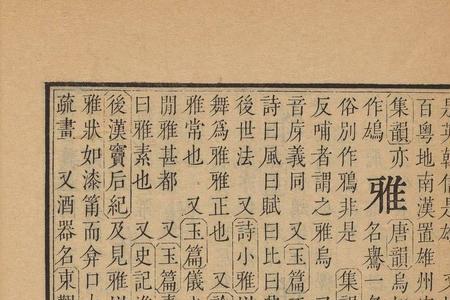 是英韓信是雄
百粵地南漢置雄州
集韻亦
作鳩
雅
唐韻烏
名譽一
俗別作鴉非是 集韻
反哺者謂之雅烏
音房義同
詩曰風曰賦曰比曰
後世法 又詩小雅
舞為雅雅正也 又
雅常也 又玉篇儀也
閒雅甚都 又玉篇素
曰雅素也 又史記
後漢竇后紀及見雅
雅狀如漆筩而弇口
疏畫 又酒器名東觀